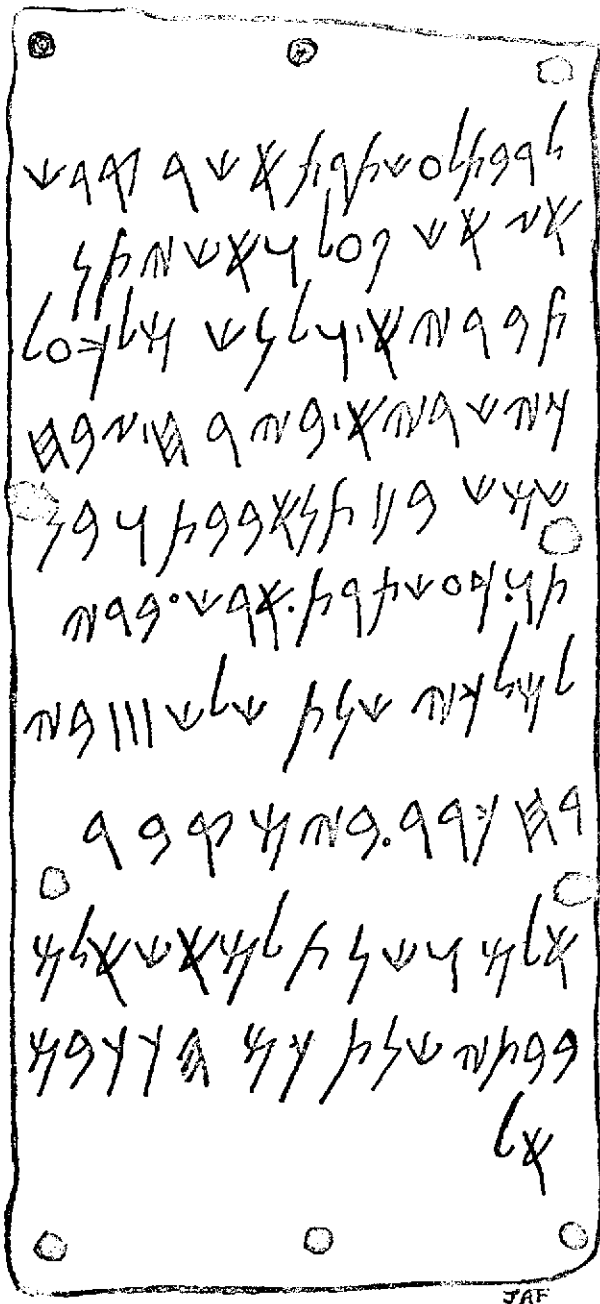 𐤋𐤓𐤁𐤕 𐤋𐤏𐤔𐤕𐤓𐤕 𐤀𐤔𐤓 𐤒𐤃𐤔
𐤀𐤆 𐤀𐤔 𐤐𐤏𐤋 𐤅𐤀𐤔 𐤉𐤕𐤍
𐤕𐤁𐤓𐤉𐤀 𐤅𐤋𐤍𐤔 𐤌𐤋𐤊 𐤏𐤋
𐤊𐤉𐤔𐤓𐤉𐤀 𐤁𐤉𐤓𐤇 𐤆𐤁𐤇
𐤔𐤌𐤔 𐤁𐤌𐤕𐤍𐤀 𐤁𐤁𐤕 𐤅𐤁𐤍
𐤕𐤅 . 𐤊𐤏𐤔𐤕𐤓𐤕 . 𐤀𐤓𐤔 . 𐤁𐤃𐤉
𐤋𐤌𐤋𐤊𐤉 𐤔𐤍𐤕 𐤔𐤋𐤔 𐤖𐤖𐤖 𐤁𐤉
𐤓𐤇 𐤊𐤓𐤓 . 𐤁𐤉𐤌 𐤒𐤁𐤓
𐤀𐤋𐤌 𐤅𐤔𐤍𐤕 𐤋𐤌𐤀𐤔 𐤀𐤋𐤌
𐤁𐤁𐤕𐤉 𐤔𐤍𐤕 𐤊𐤌 𐤄𐤊𐤊𐤁𐤌
𐤀𐤋
JAF